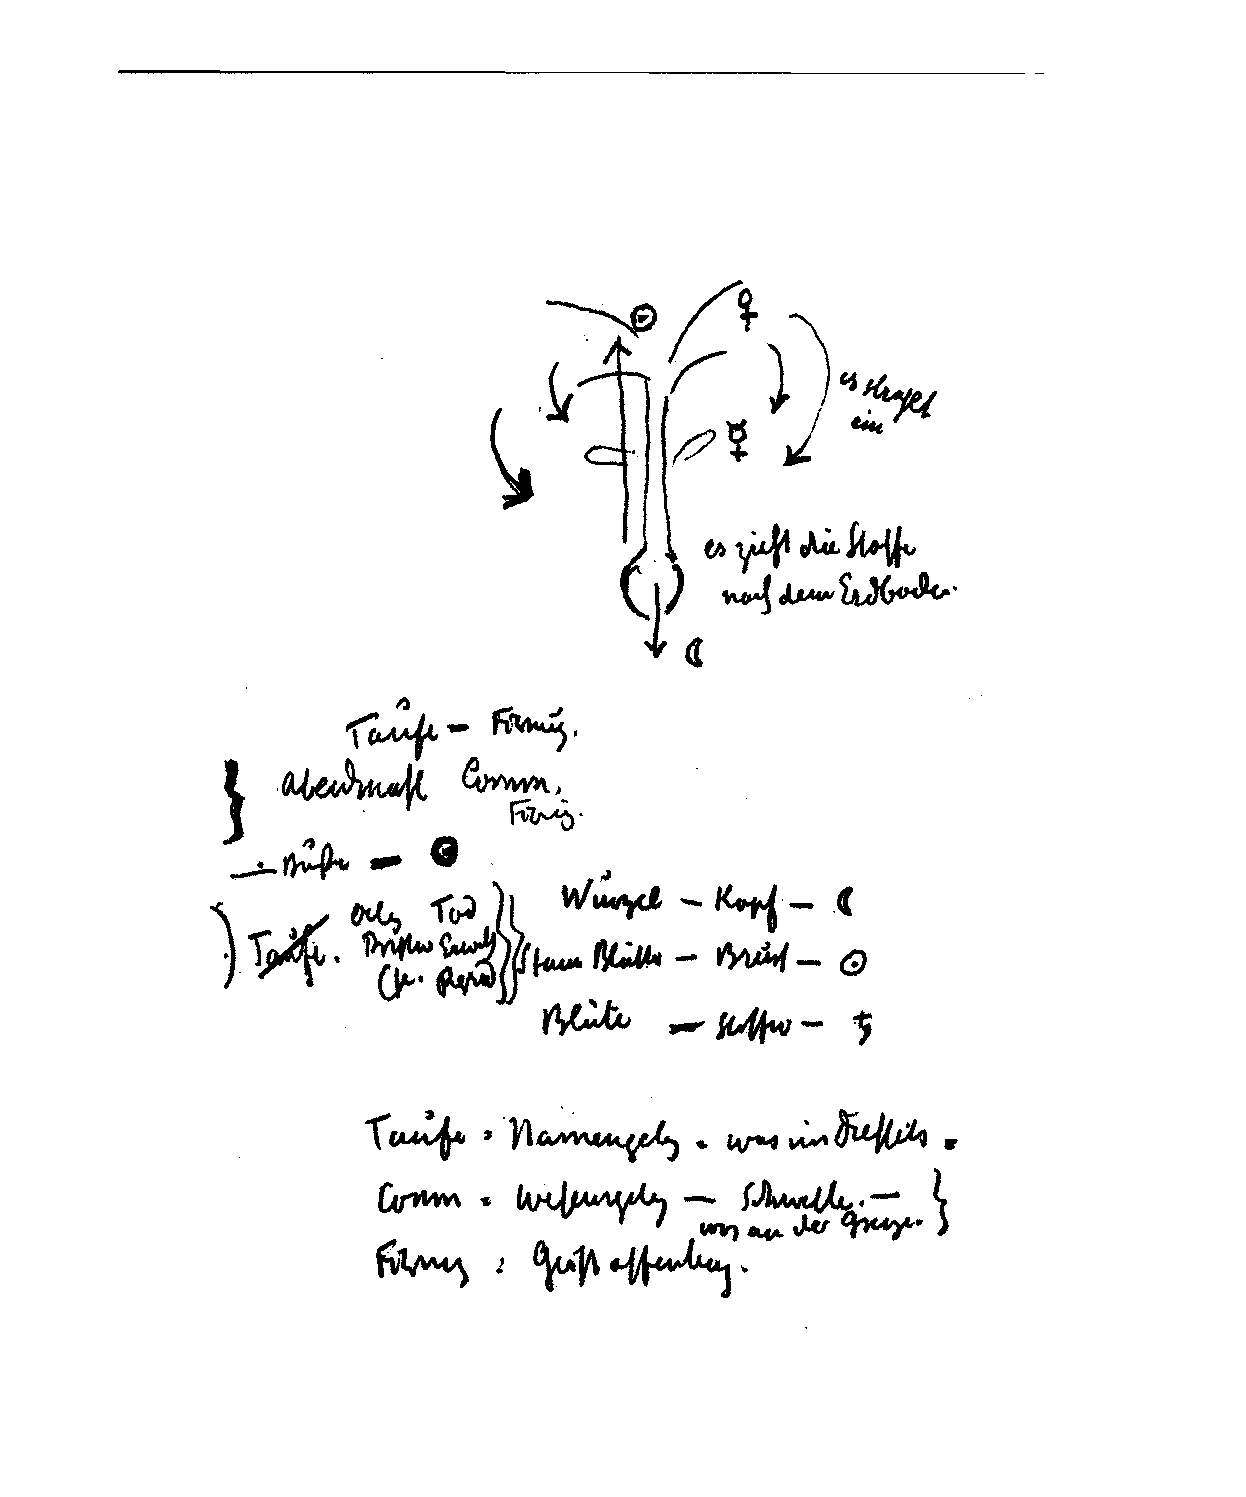 ☉
♀
es strahlt
ein
☿
es zieht die Stoffe
nach dem Erdboden.
☾
Taufe – Firmug.
Abendmahl Comm.
Firmg.
Buße –
Taufe. Oelg Tod
Wurzel – Kopf – ☾
Stam Blätter – Brust – ☉
Blüte – Stoffw – ♄
Taufe = Namengebg. was im Diesseits.
Comm = Wesensgebg – Schwelle. –
was an der Grenze.
Firmug : Geistoffenbarg.